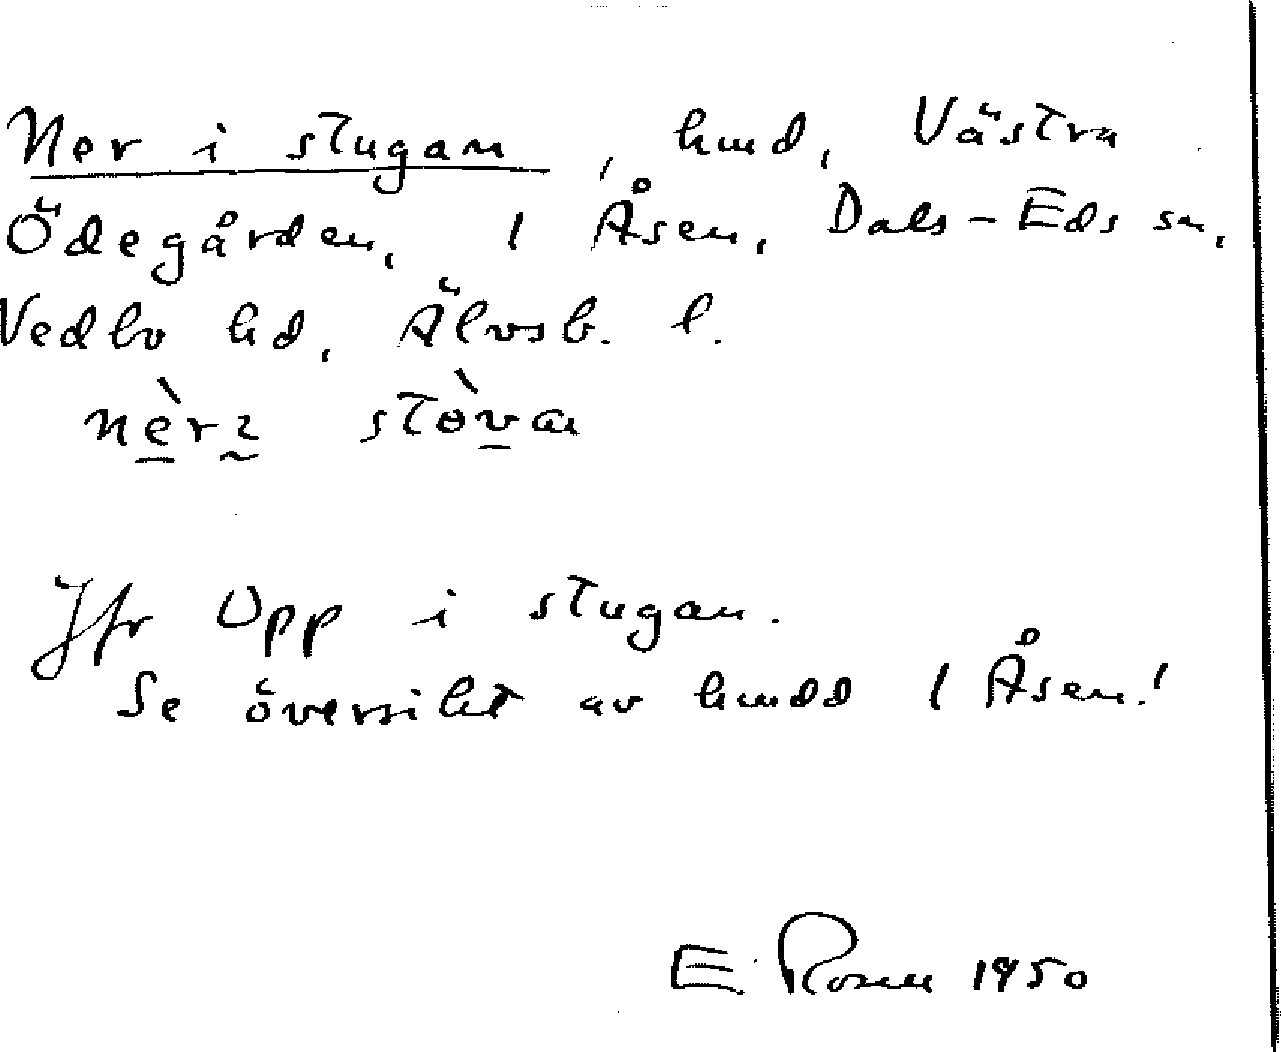 Ner i stugan, hmd, Västra
Ödegården, 1 Åsen, Dals-Eds sn,
Vedbo hd, Älvsb. l.
Jfr Upp i stugan.
Se översikt av hmdd 1 Åsen!
E. Rosen 1950